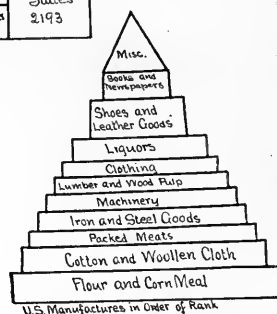 States
2193
Misc.
Books and
Newspapers
Shoes and
Leather Goods
Liquors
Clothing
Lumber and Wood Pulp
Machinery
Iron and Steel Goods
Packed Meats
Cotton and Woollen Cloth
Flour and Corn Meal
U.S. Manufactures in Order of Rank